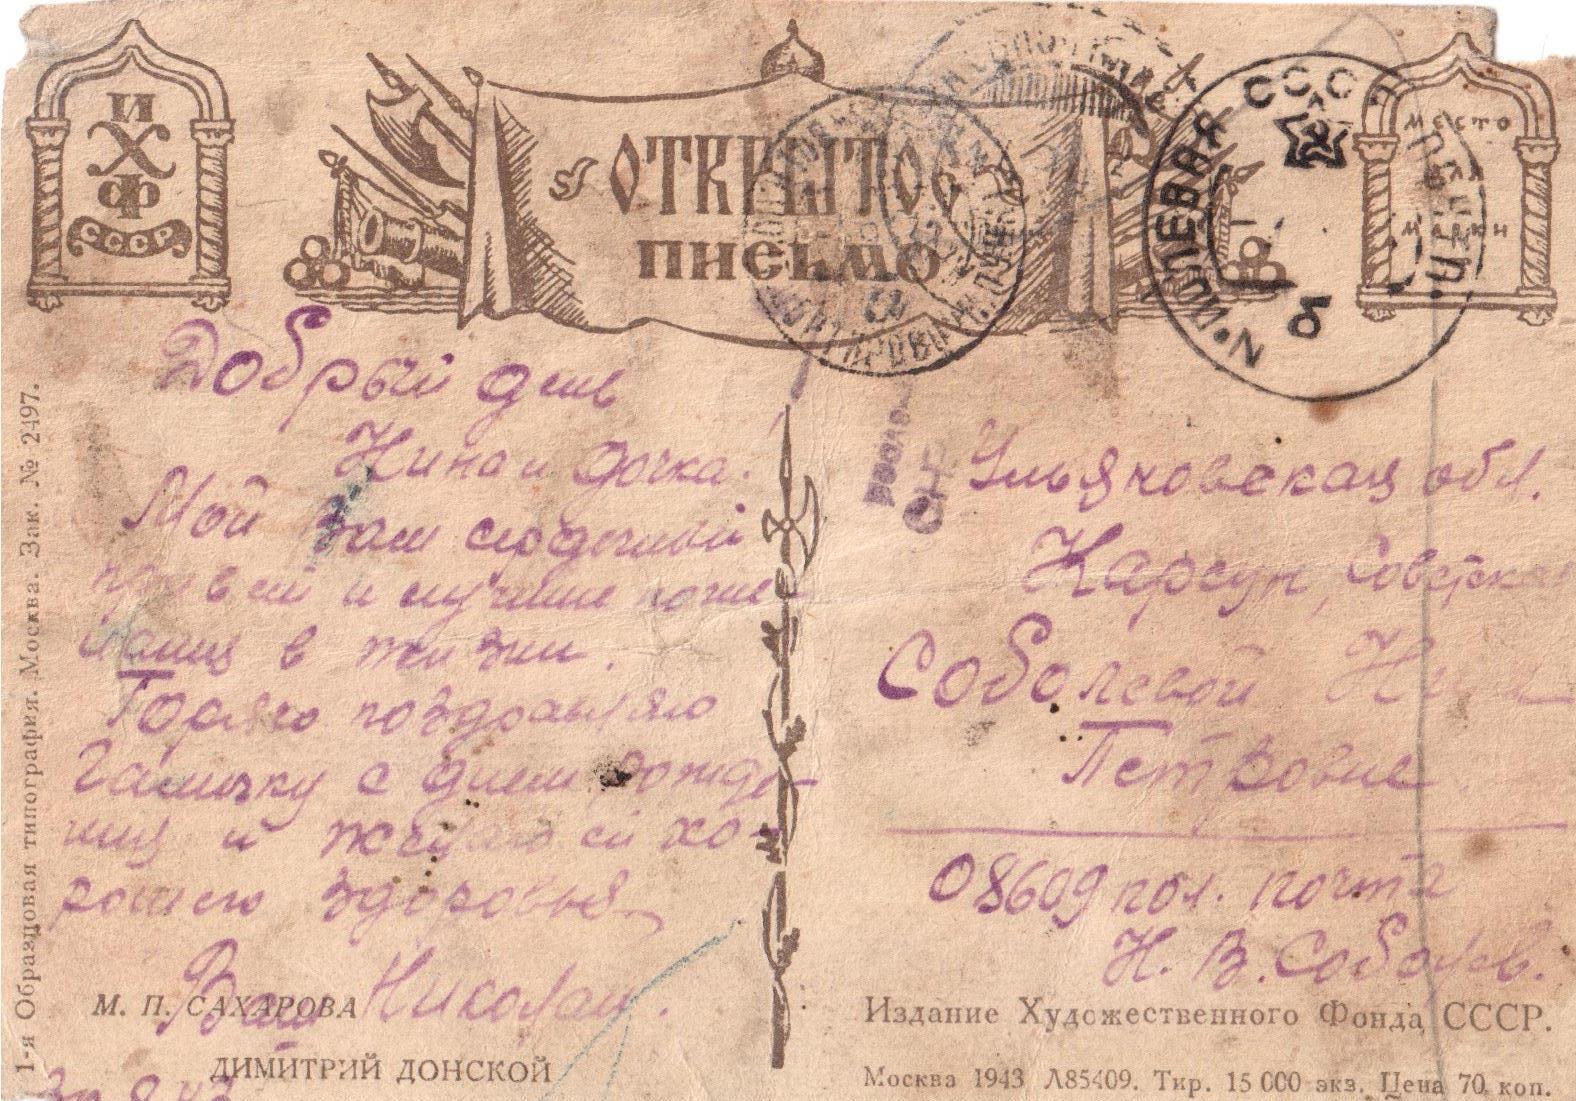 И
Х
Ф
СССР
ОТКРЫТОЕ
ПИСЬМО
МЕСТО
ДЛЯ
МАРКИ
ПОЛЕВАЯ СССР
б
Добрый день
Нина и дочка.
Мой вам сердечный
привет и лучшие поже-
лания в жизни.
Горячо поздравляю
Галочку с днем рожде-
ния и желаю ей хо-
рошего здоровья
Ваш Николай.
Ульяновская обл.
Карсун, Советская
Соболевой Нине
Петровне
08609 пол. почта
Н. В. Соболев.
М. П. САХАРОВА
ДИМИТРИЙ ДОНСКОЙ
Издание Художественного Фонда СССР.
Москва 1943 Л85409. Тир. 15 000 экз. Цена 70 коп.
1-я Образцовая типография. Москва. Зак. № 2497.